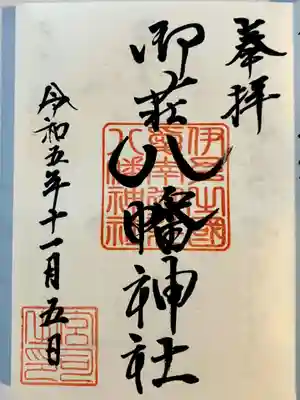 奉拝
御荘八幡神社
令和五年十一月五日
伊予之国
八幡神社